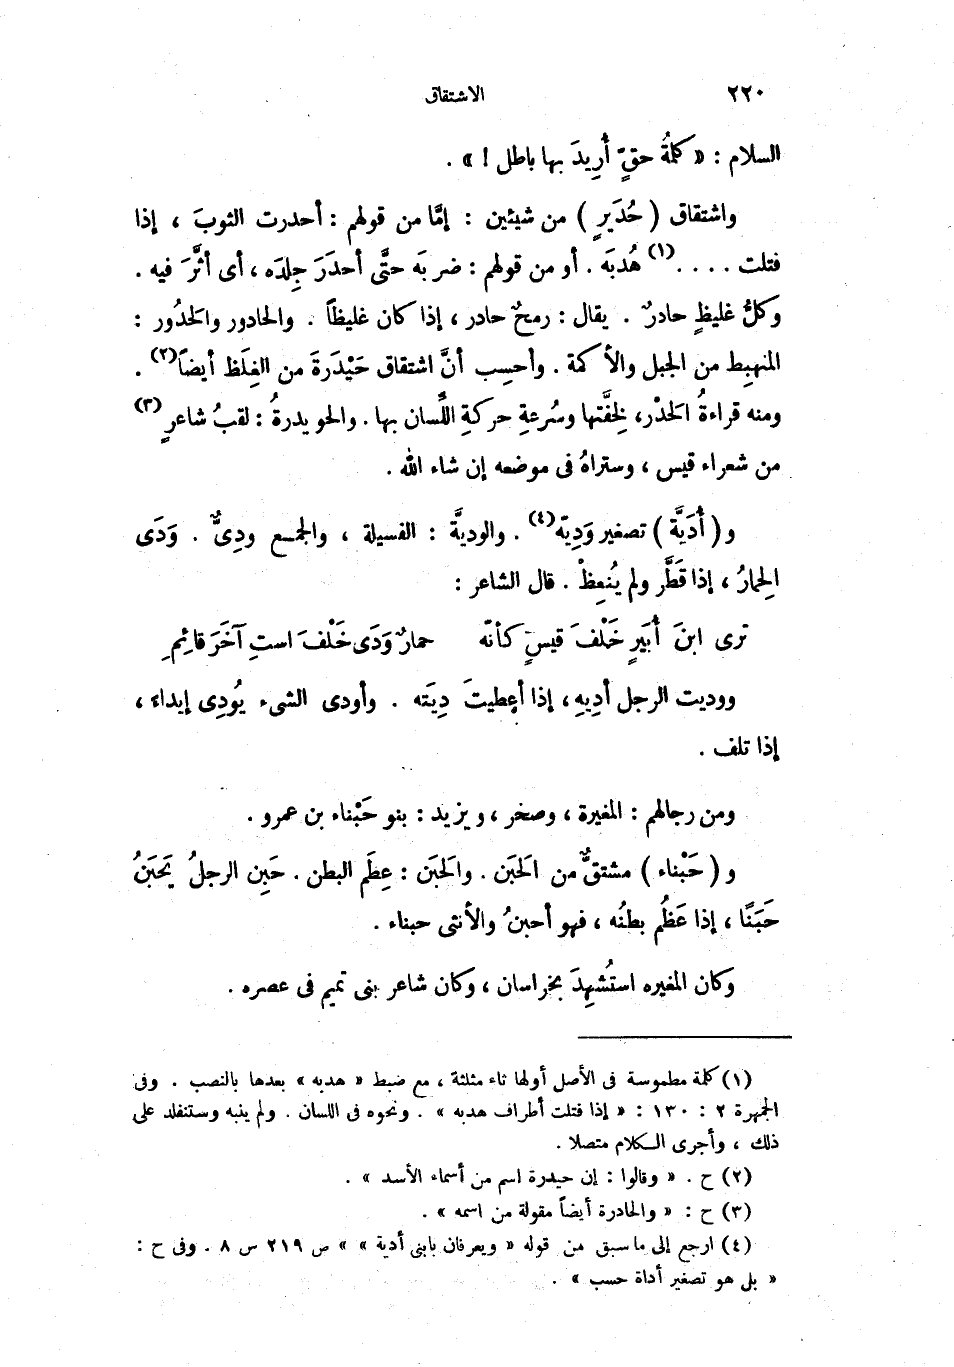 ٢٢٠ الاشتقاق
السلام : « كلمةُ حقٍّ أُرِيدَ بها باطل ! » .
واشتقاق ( حُدَيرٍ ) من شيئين : إمَّا من قولهم : أحدرت الثوبَ ، إذا
فتلت . . . .(١) هُدبَه . أو من قولهم : ضربَه حتَّى أحدَرَ جِلدَه ، أى أثَّرَ فيه .
وكلُّ غليظٍ حادرٌ . يقال : رمحٌ حادر ، إذا كان غليظاً . والحادور والحَدُور :
المنهبِط من الجبل والأكمة . وأحسِب أنَّ اشتقاق حَيْدَرةَ من الغِلَظ أيضاً(٢) .
ومنه قراءةُ الحَدْر، لخِفَّتها وسُرعةِ حركةِ اللِّسان بها . والحويدرةُ : لقبُ شاعرٍ(٣)
من شعراء قيس ، وستراهُ فى موضعه إن شاء الله .
و ( أُدَيَّة ) تصغير وَدِيّه(٤) . والوديَّة : الفسيلة ، والجمع ودِىٌّ . وَدَى
الحِمارُ ، إذا قَطَّر ولم يُنعِظْ . قال الشاعر :
ترى ابنَ أُبَيرٍ خَلْفَ قيسٍ كأنّه حمارٌ وَدَى خَلْفَ استِ آخَرَ قائمِ
ووديت الرجل أدِيهِ ، إذا أعطيتَ دِيَته . وأودى الشىء يُودِى إيداءً ،
إذا تلف .
ومن رجالهم : المغيرة ، وصخر ، ويزيد : بنو حَبْناء بن عمرو .
و ( حَبْناء ) مشتقٌّ من الحَبَن . والحَبَن : عِظَم البطن . حَبِن الرجلُ يَحبَنُ
حَبَنًا ، إذا عَظُم بطنُه ، فهو أحبنُ والأنثى حبناء .
وكان المغيره استُشهِدَ بخراسان ، وكان شاعر بنى تميم فى عصره .
(١) كلمة مطموسة فى الأصل أولها ثاء مثلثة ، مع ضبط « هدبه » بعدها بالنصب . وفى
الجمهرة ٢ : ١٣٠ : « إذا فتلت أطراف هدبه » . ونحوه فى اللسان . ولم ينبه وستنفلد على
ذلك ، وأجرى الكلام متصلا .
(٢) ح . « وقالوا : إن حيدرة اسم من أسماء الأسد » .
(٣) ح : « والحادرة أيضاً مقولة من اسمه » .
(٤) ارجع إلى ما سبق من قوله « ويعرفان بابنى أدية » » ص ٢١٩ س ٨ . وفى ح :
« بل هو تصغير أداة حسب » .